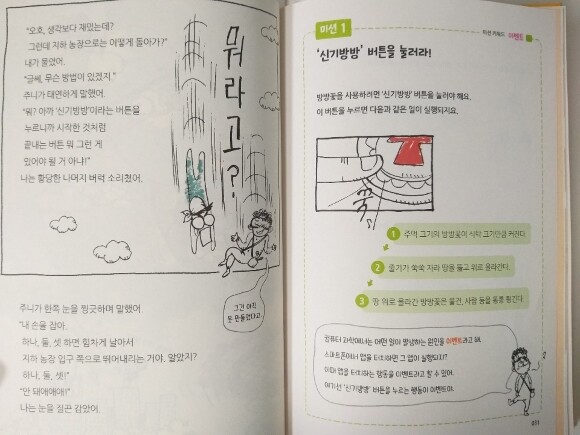 "오호, 생각보다 재밌는데?
그런데 지하 농장으로는 어떻게 돌아가?"
내가 물었어.
"글쎄, 무슨 방법이 있겠지."
주니가 태연하게 말했어.
"뭐? 아까 '신기방방'이라는 버튼을
누르니까 시작한 것처럼
끝내는 버튼 뭐 그런 게
있어야 될 거 아냐!"
나는 황당한 나머지 버럭 소리쳤어.
뭐라고?
그건 아직
못 만들었다고.
주니가 한쪽 눈을 찡긋하며 말했어.
"내 손을 잡아.
하나, 둘, 셋 하면 힘차게 날아서
지하 농장 입구 쪽으로 뛰어내리는 거야. 알았지?
하나, 둘, 셋!"
"안 돼애애애!"
나는 눈을 질끈 감았어.
미션 1
미션 키워드 이벤트
'신기방방' 버튼을 눌러라!
방방꽃을 사용하려면 '신기방방' 버튼을 눌러야 해요.
이 버튼을 누르면 다음과 같은 일이 실행되지요.
꾹
1 주먹 크기의 방방꽃이 식탁 크기만큼 커진다.
2 줄기가 쑥쑥 자라 땅을 뚫고 위로 올라간다.
3 땅 위로 올라간 방방꽃은 물건, 사람 등을 통통 튕긴다.
컴퓨터 과학에서는 어떤 일이 발생하는 원인을 이벤트라고 해.
스마트폰에서 앱을 터치하면 그 앱이 실행되지?
이때 앱을 터치하는 행동을 이벤트라고 할 수 있어.
여기선 '신기방방' 버튼을 누르는 행동이 이벤트야.
031